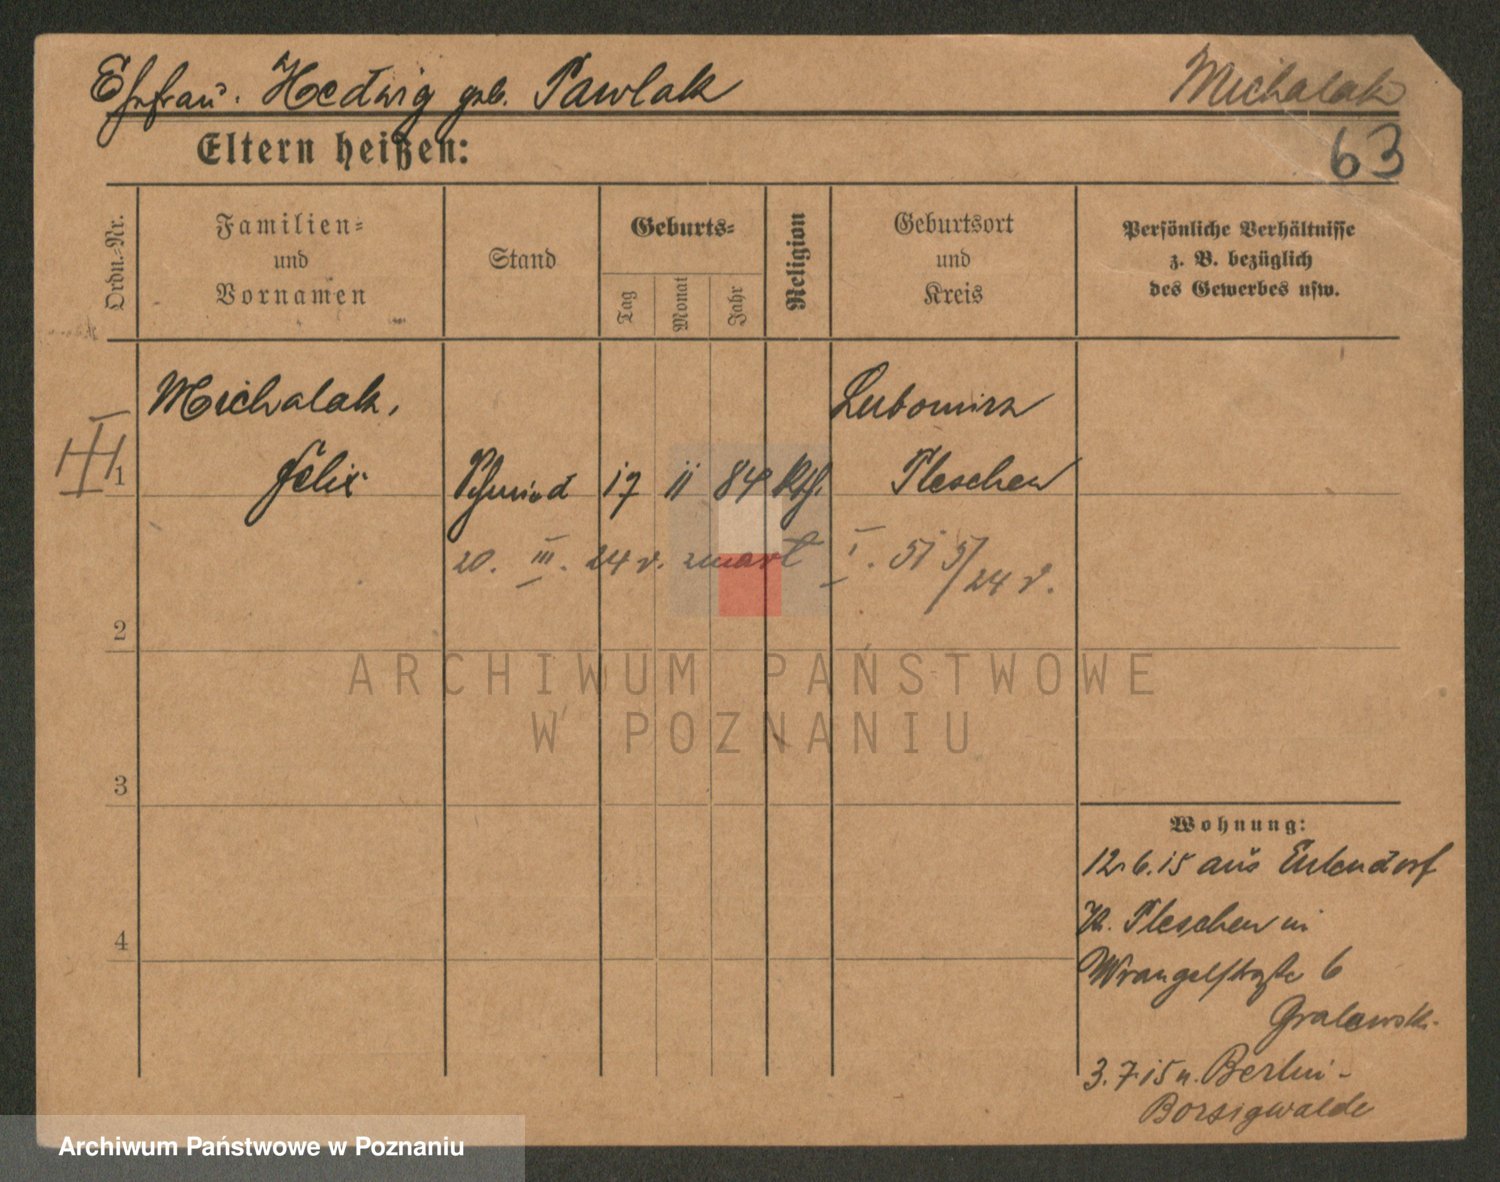 Ehefrau. Hedwig geb. Pawlak
Michalak
63
Eltern heißen:
Ordn.=Nr.
Familien=
und
Vornamen
Stand
Geburts=
Tag
Monat
Jahr
Religion
Geburtsort
und
Kreis
Persönliche Verhältnisse
z. B. bezüglich
des Gewerbes usw.
Michalak, Lubomirz
III
1 Felix Schmied 17 11 84 Kth. Pleschen
20. III. 24 r. zmarł I. 51 5/24 r.
2
3
4
Wohnung:
12.6.15 aus Eulendorf
Kr. Pleschen in
Wrangelstraße 6
Gralewski
3.7.15 n. Berlin-
Borsigwalde
ARCHIWUM PAŃSTWOWE
W POZNANIU
Archiwum Państwowe w Poznaniu